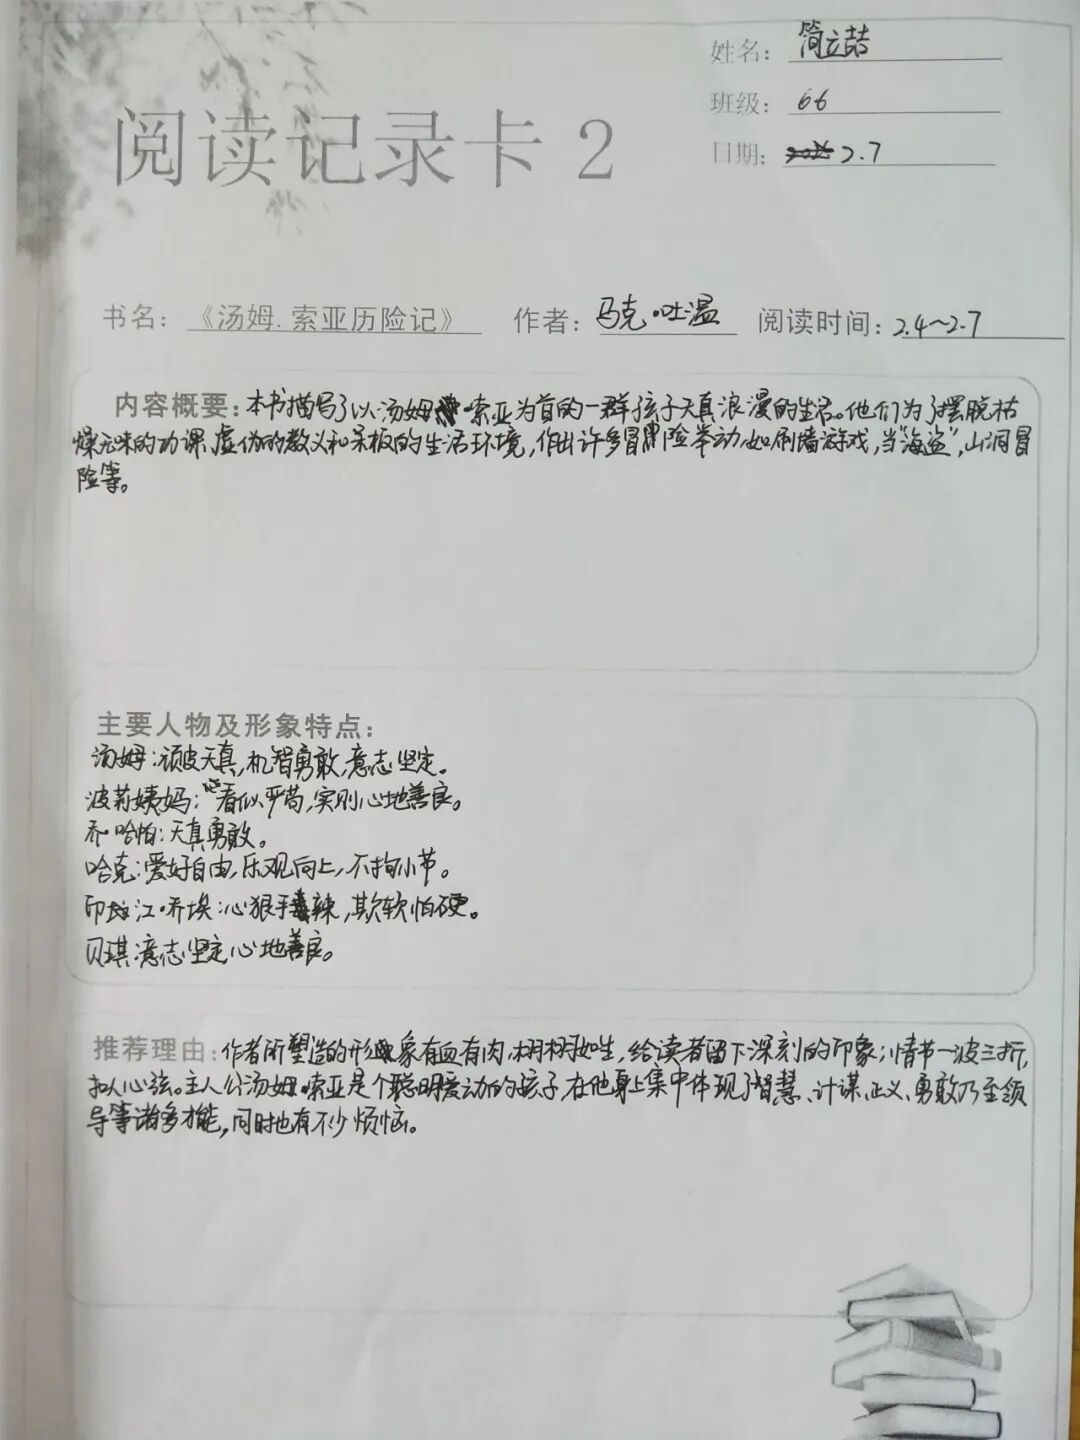 姓名：简立喆
班级：66
阅读记录卡 2
日期：2.7
书名：《汤姆.索亚历险记》 作者：马克·吐温 阅读时间：2.4~2.7
内容概要：本书描写了以汤姆·索亚为首的一群孩子天真浪漫的生活。他们为了摆脱枯
燥无味的功课、虚伪的教义和呆板的生活环境，作出许多冒险举动，如刷墙游戏，当“海盗”，山洞冒
险等。
主要人物及形象特点：
汤姆：顽皮天真，机智勇敢，意志坚定。
波莉姨妈：看似严苟，实则心地善良。
乔·哈帕：天真勇敢。
哈克：爱好自由，乐观向上，不拘小节。
印江·乔埃：心狠手辣，欺软怕硬。
贝琪：意志坚定，心地善良。
推荐理由：作者所塑造的形象有血有肉，栩栩如生，给读者留下深刻的印象；情节一波三折，
扣人心弦。主人公汤姆·索亚是个聪明爱动的孩子，在他身上集中体现了智慧、计谋、正义、勇敢乃至领
导等诸多才能，同时也有不少烦恼。